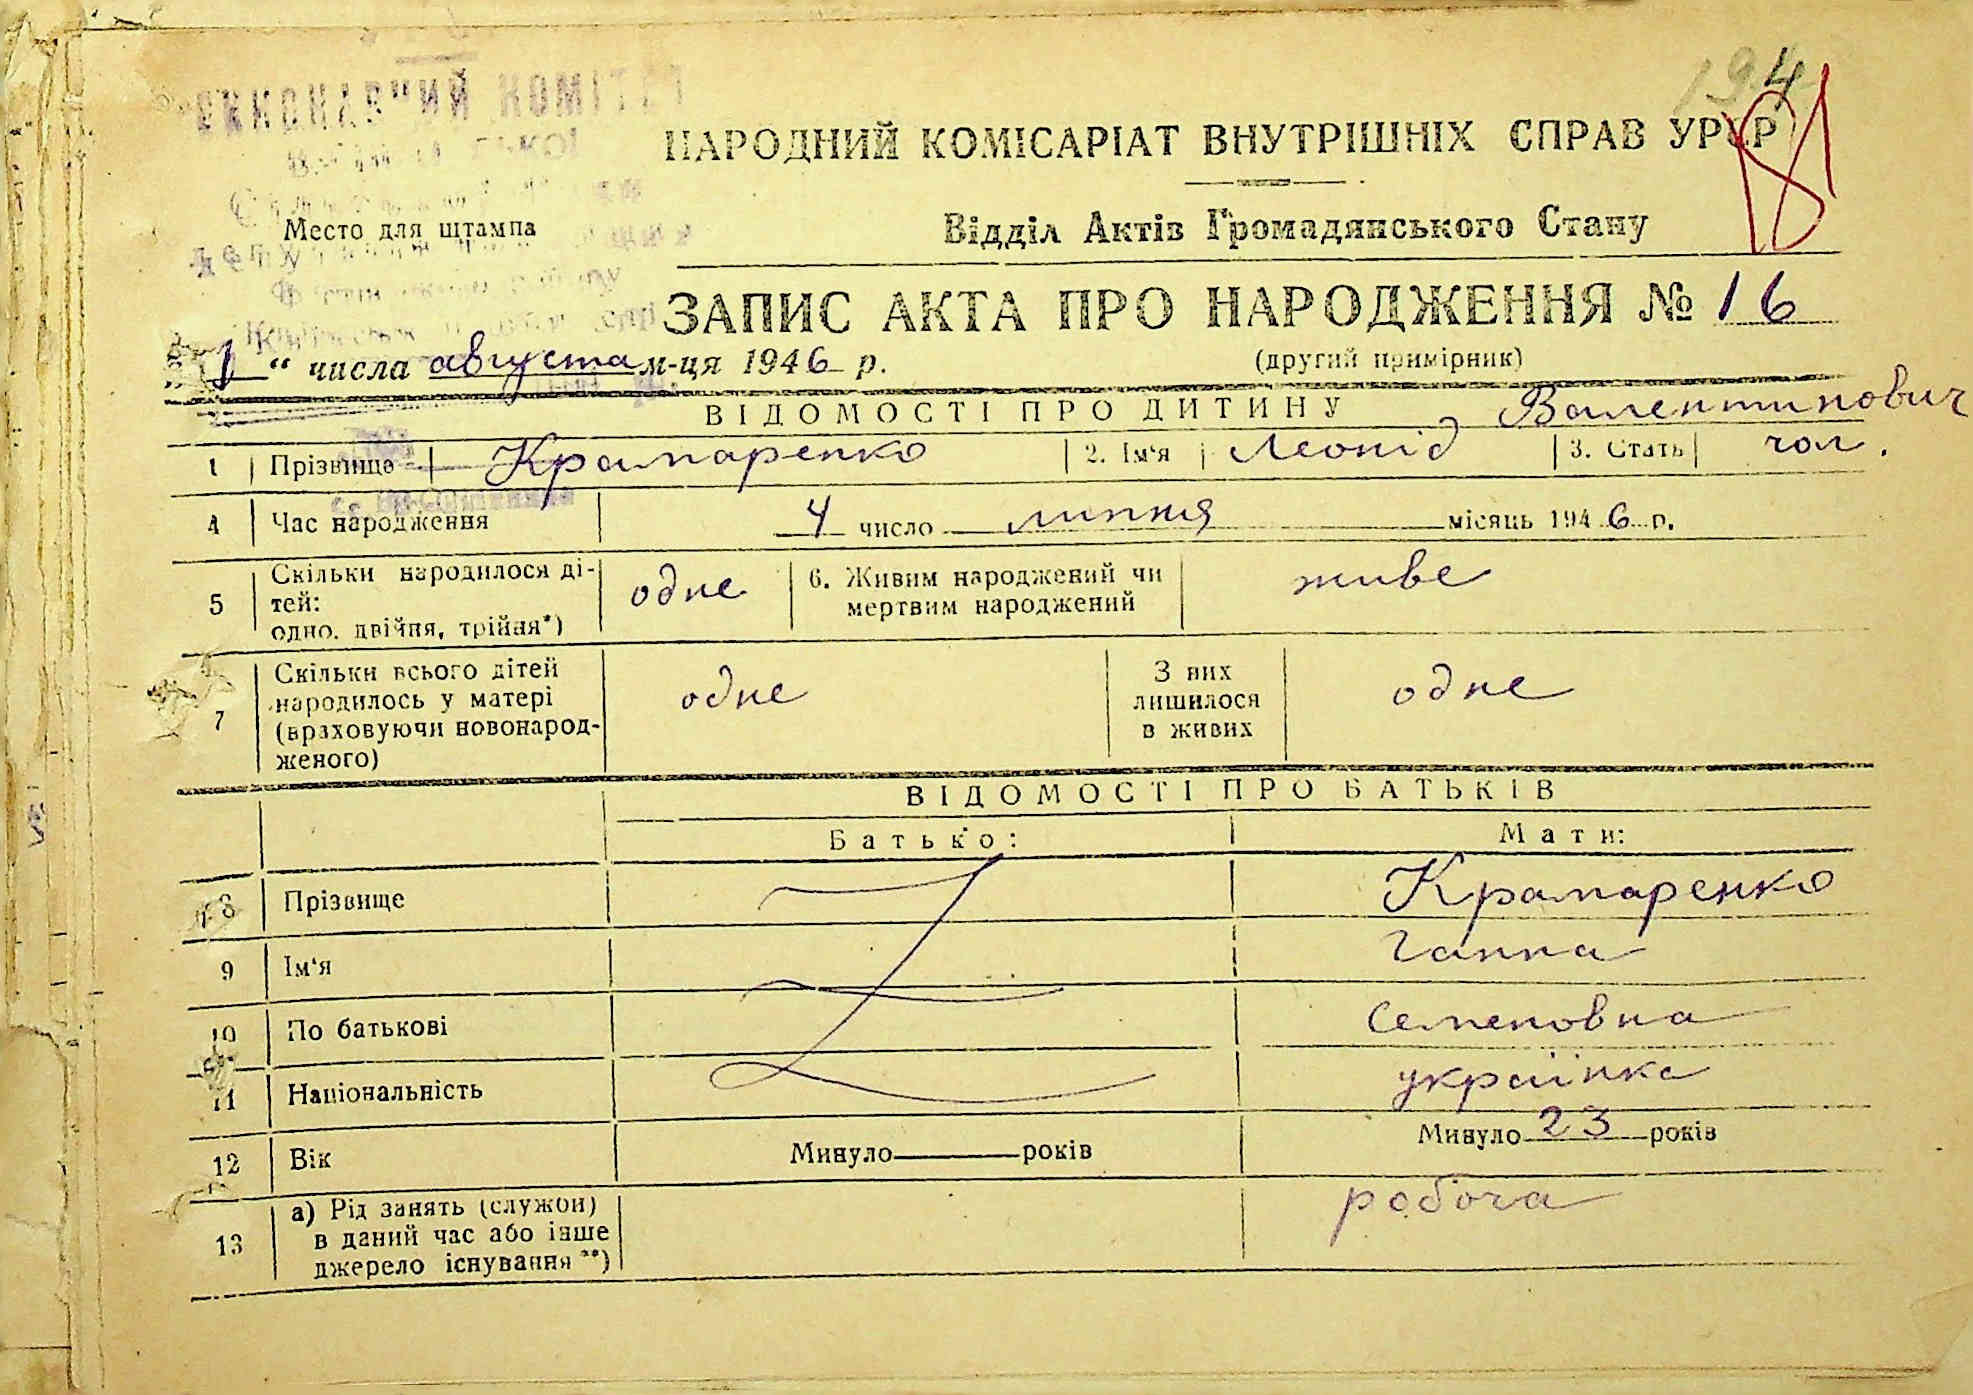 194
81
НАРОДНИЙ КОМІСАРІАТ ВНУТРІШНІХ СПРАВ УРСР
Место для штампа
Відділ Актів Громадянського Стану
ЗАПИС АКТА ПРО НАРОДЖЕННЯ № 16
1 “ числа августа м-ця 1946 р.
(другий примірник)
ВІДОМОСТІ ПРО ДИТИНУ
Валентинович
1 Прізвище Крамаренко 2. Ім‘я Леонід 3. Стать чол.
4 Час народження 4 число липня місяць 1946 р.
5 Скільки народилося ді-
тей:
одно, двійня, трійня*)
одне
6. Живим народжений чи
мертвим народжений
живе
7 Скільки всього дітей
народилось у матері
(враховуючи новонарод-
женого)
одне
З них
лишилося
в живих
одне
ВІДОМОСТІ ПРО БАТЬКІВ
Батько: Мати:
8 Прізвище Крамаренко
9 Ім‘я Ганна
10 По батькові Семеновна
11 Національність українка
12 Вік Минуло років Минуло 23 років
13 а) Рід занять (служби)
в даний час або інше
джерело існування **)
робоча